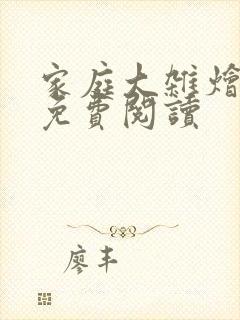 家庭大雜燴
免費閱讀
廖丰